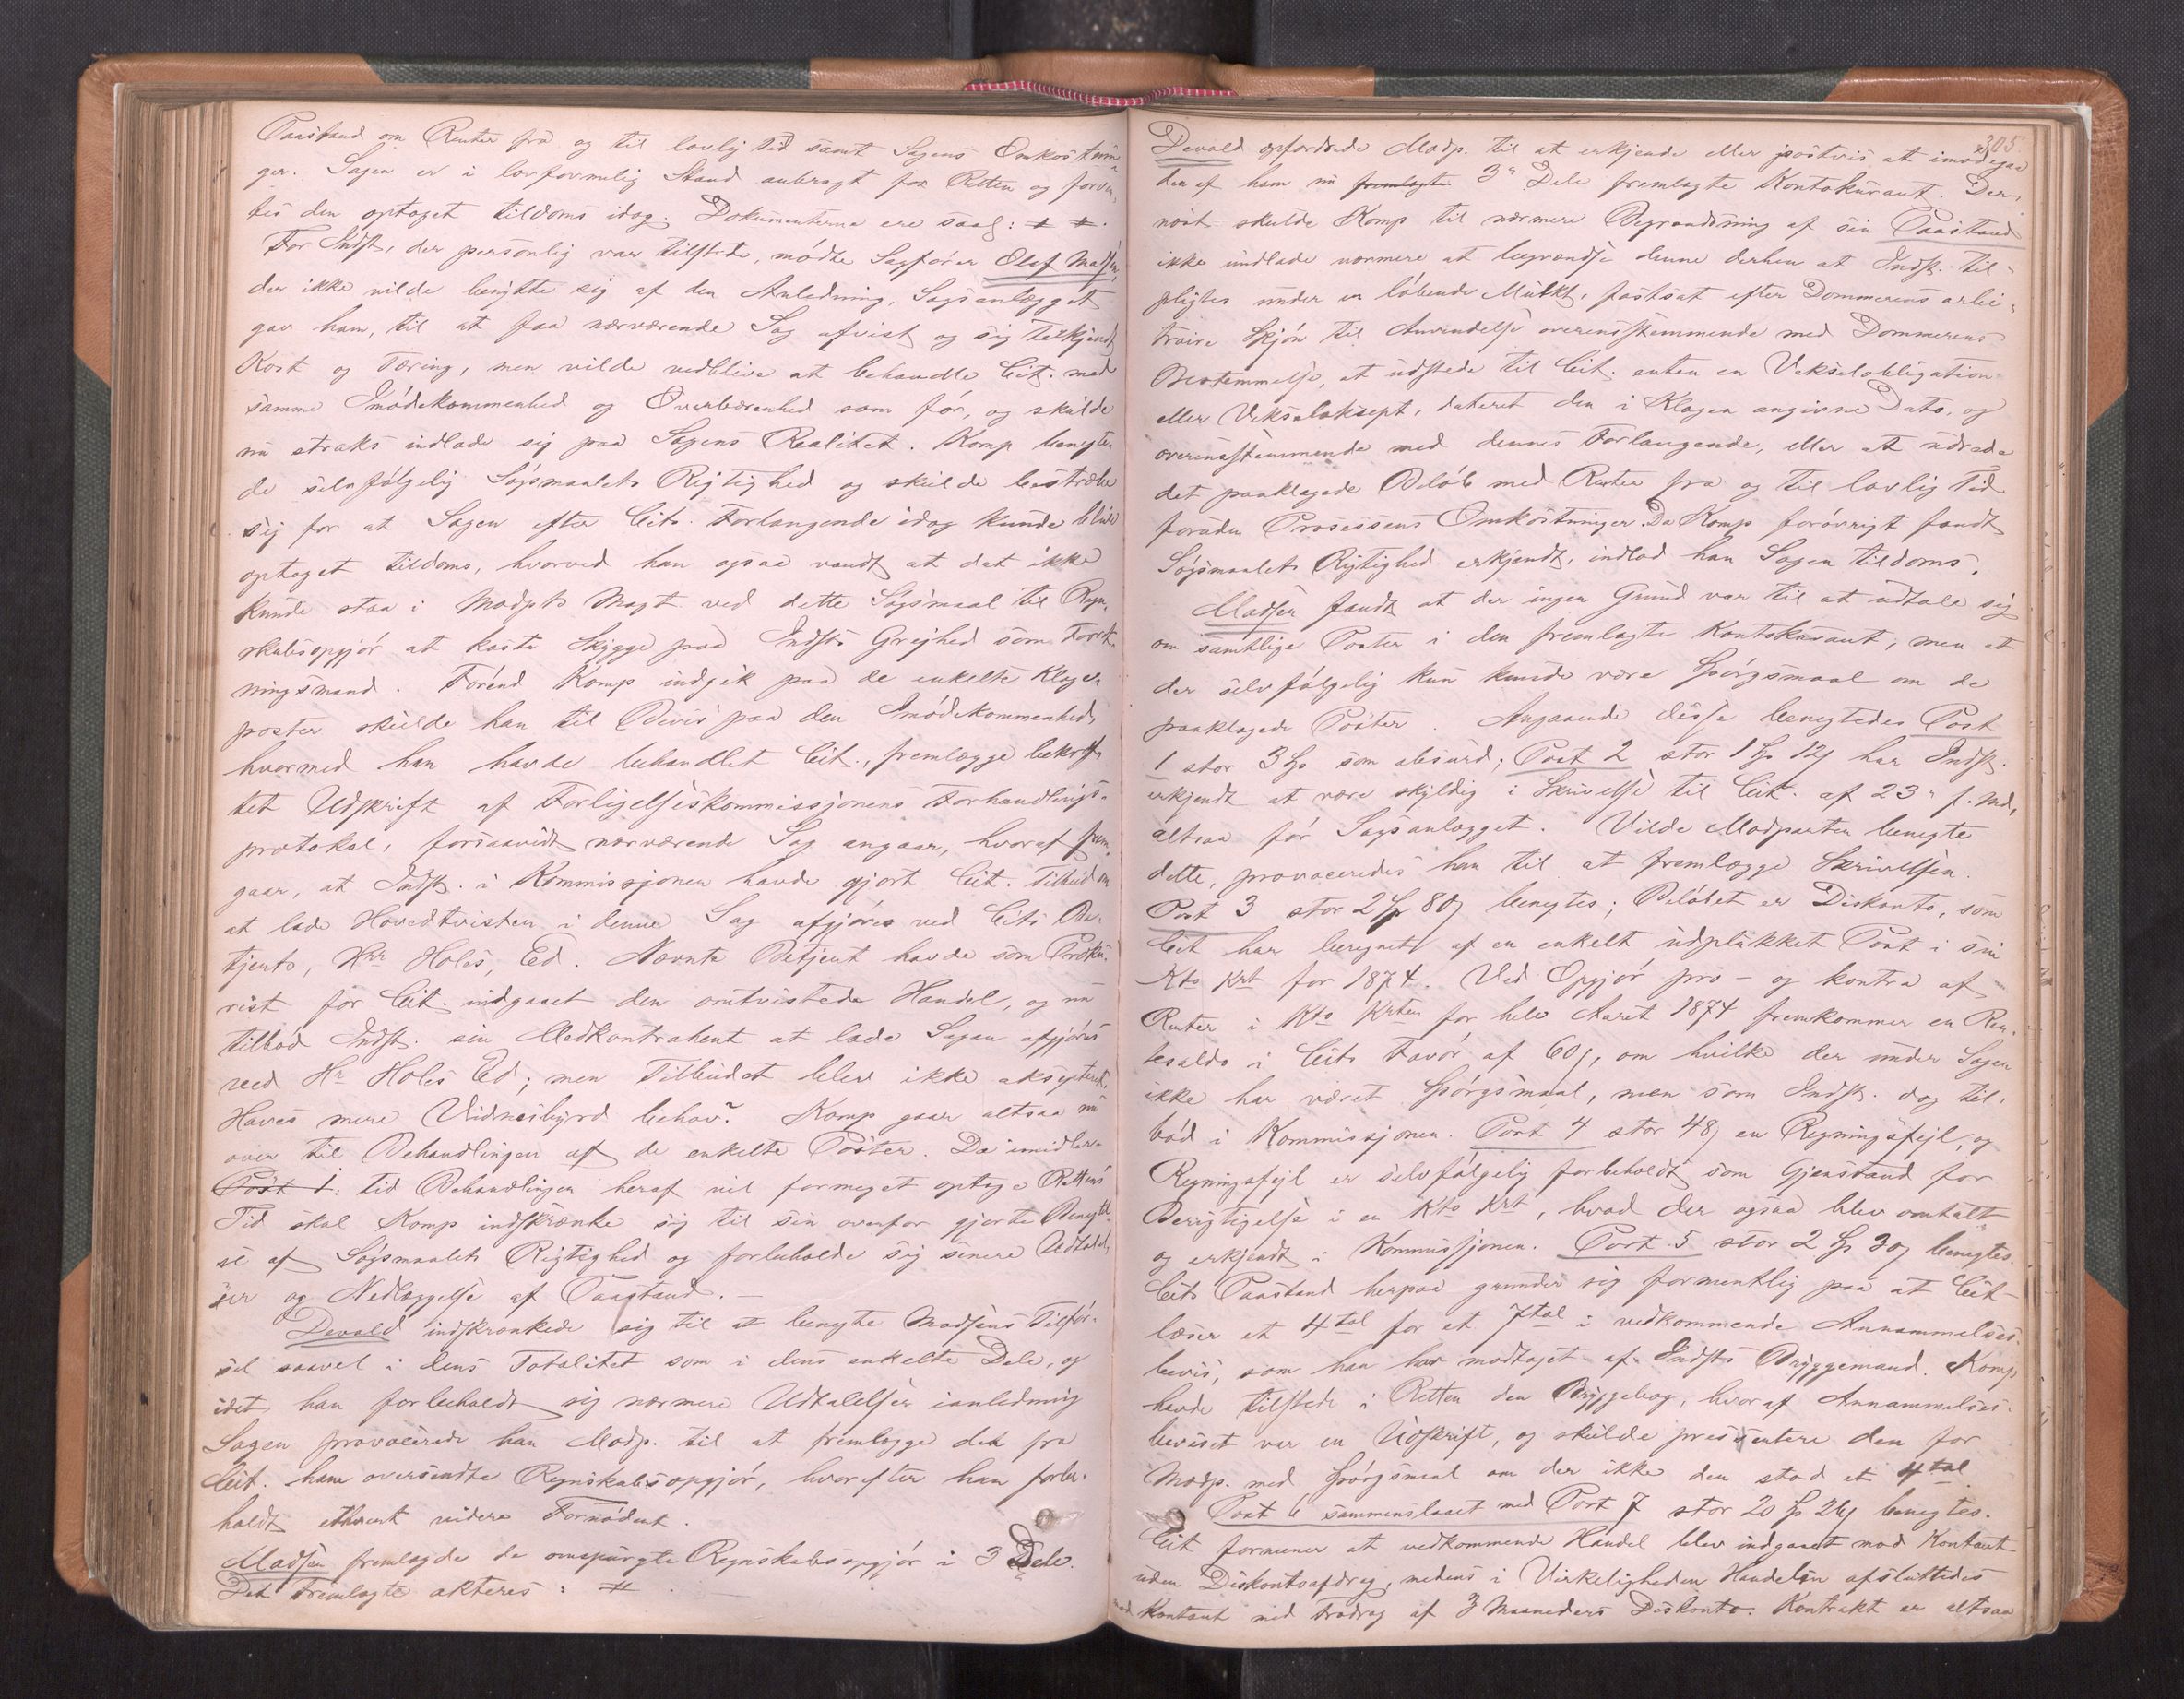 Paastand om Renter fra og til lovlig Tid samt Sagens Omkostnin
ger. Sagen er i lovformelig Stand anbragt for Retten og forven,
tes den optaget tildoms idag. Dokumenterne ere saal:
For Indst, der personlig var tilstede, mödte Sagförer Olaf Madsen,
der ikke vilde benytte sig af den Anledning, Sagsanlægget
gav ham, til at faa nærværende Sag afvist og sig tilkjendt
Kost og Tæring, men vilde vedblive at behandle Cit. med
samme Imödekommenhed og Overbærenhed som för, og skulde
nu straks indlade sig paa Sagens Realitet. Komp benegte
de selvfölgelig Sögsmaalets Rigtighed og skulde bestræbe
sig for at Sagen efter Cits. Forlangende idag kunde blive
optaget tildoms, hvorved han ogsaa vandt at det ikke
kunde staa i Modpts Magt ved dette Sögsmaal til Regn,
skabsopgjör at kaste Skygge paa Indsts Grejhed som Forret
ningsmand. Förend Komp indgik paa de enkelte Klage
poster skulde han til Bevis paa den Imödekommenhed
hvormed han havde behandlet Cit., fremlægge bekræf
tet Udskrift af Forligelseskommissjonens Forhandlings-
protokol, forsaavidt nærværende Sag angaar, hvoraf frem,
gaar, at Indst. i Kommissjonen havde gjort Cit. Tilbud om
at lade Hovedtvisten i denne Sag afgjöres ved Cits Be-
tjent, Hrr Holes, Ed. Nævnte Betjent havde som Proku-
rist for Cit. indgaaet den omtvistede Handel, og nu
tilböd Indst. sin Medkontrahent at lade Sagen afgjöres
ved Hr Holes Ed; men Tilbudet blev ikke aksepteret.
Haves mere Vidnesbyrd behov? Komp gaar altsaa nu
over til Behandlingen af de enkelte Poster. Da imidler-
Post 1: tid Behandlingen heraf vil formeget optage Rettens
Tid skal Komp indskrænke sig til sin ovenfor gjorte Benegtel
se af Sögsmaalets Rigtighed og forbeholde sig senere Udtalel
ser og Nedlæggelse af Paastand. —
Devold indskrænkede sig til at benegte Madsens Tilför-
sel saavel i dens Totalitet som i dens enkelte Dele, og
idet han forbeholdt sig nærmere Udtalelser ianledning
Sagen provocerede han Modp. til at fremlægge det fra
Cit. ham oversendte Regnskabsopgjör, hvorefter han forbe-
holdt ethvert videre Fornödent.
Madsen fremlagde de omspurgte Regnskabsopgjör i 3 Dele.
Det Fremlagte akteres:
305.
Devold opfordrede Modp. til at erkjende eller postvis at imödegaa
den af ham nu fremlagte 3 Dele fremlagte Kontokurant. Der,
næst skulde Komp til nærmere Begrundelse af sin Paastand
ikke undlade nærmere at begrændse denne derhen at Indst. til-
pligtes under en löbende Mulkt, fastsat efter Dommerens arbi-
trære Skjön til Anvendelse overensstemmende med Dommerens
Bestemmelse, at udstede til Cit. enten en Vekselobligation
eller Vekselaksept, dateret den i Klagen angivne Dato, og
overensstemmende med dennes Forlangende, eller at udrede
det paaklagede Belöb med Renter fra og til lovlig Tid
foruden Prosessens Omkostninger. Da Komp forövrigt fandt
Sögsmaalets Rigtighed erkjendt, indlod han Sagen tildoms.
Madsen fandt at der ingen Grund var til at udtale sig
om samtlige Poster i den fremlagte Kontokurant, men at
der selvfölgelig kun kunde være Spörgsmaal om de
paaklagede Poster. Angaaende disse benegtedes Post
1 stor 3 Sp som absurd; Post 2 stor 1 Sp 12 har Indst.
erkjendt at være skyldig i Skrivelse til Cit. af 23 f. Md,
altsaa för Sagsanlægget. Vilde Modparten benegte
dette, provoceredes han til at fremlægge Skrivelsen.
Post 3 stor 2 Sp 80 benegtes; Belöbet er Diskonto, som
Cit har beregnet af en enkelt udplukket Post i sin
Kto Krt for 1874. Ved Opgjör pro- og kontra af
Renter i Kto Krten for hele Aaret 1874 fremkommer en Ren
tesaldo i Cits Favör af 60, om hvilke der under Sagen
ikke har været Spörgsmaal, men som Indst. dog til-
böd i Kommissjonen. Post 4 stor 48 en Regningsfejl, og
Regningsfejl er selvfölgelig forbeholdt som Gjenstand for
Berigtigelse i en Kto Krt, hvad der ogsaa blev omtalt
og erkjendt i Kommissjonen. Post 5 stor 2 Sp 30 benegtes.
Cits Paastand herpaa grunder sig formentlig paa at Cit
læser et 4tal for et 7tal i vedkommende Annammelses-
bevis, som han har modtaget af Indsts Bryggemand. Komp
havde tilstede i Retten den Bryggebog, hvoraf Annammelses-
beviset var en Udskrift, og skulde presentere den for
Modp. med Spörgsmaal om der ikke den stod et 4tal.
Post 6 sammenslaaet med Post 7 stor 20 Sp 26 benegtes.
Cit formener at vedkommende Handel blev indgaaet mod Kontant
uden Diskontoafdrag, medens i Virkeligheden Handelen afsluttedes
mod Kontant med Fradrag af 3 Maaneders Diskonto. Kontrakt er altsaa